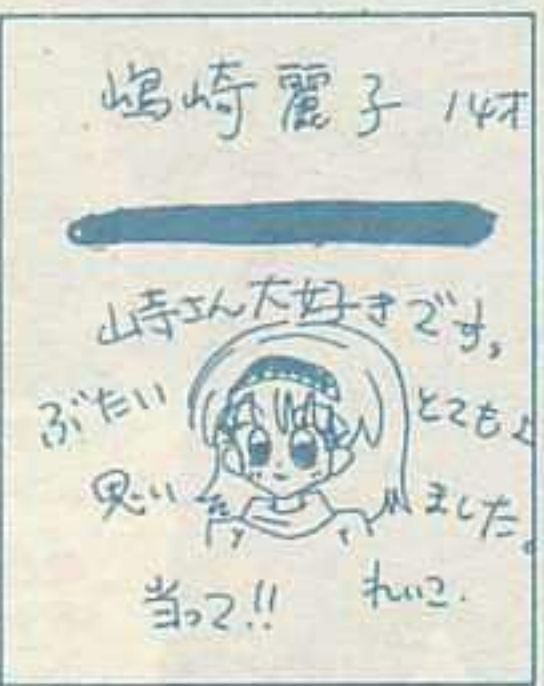 嶋崎麗子 14才
山寺さん大好きです。
ぶたい とてもよ
思い ました。
当って!! れいこ.